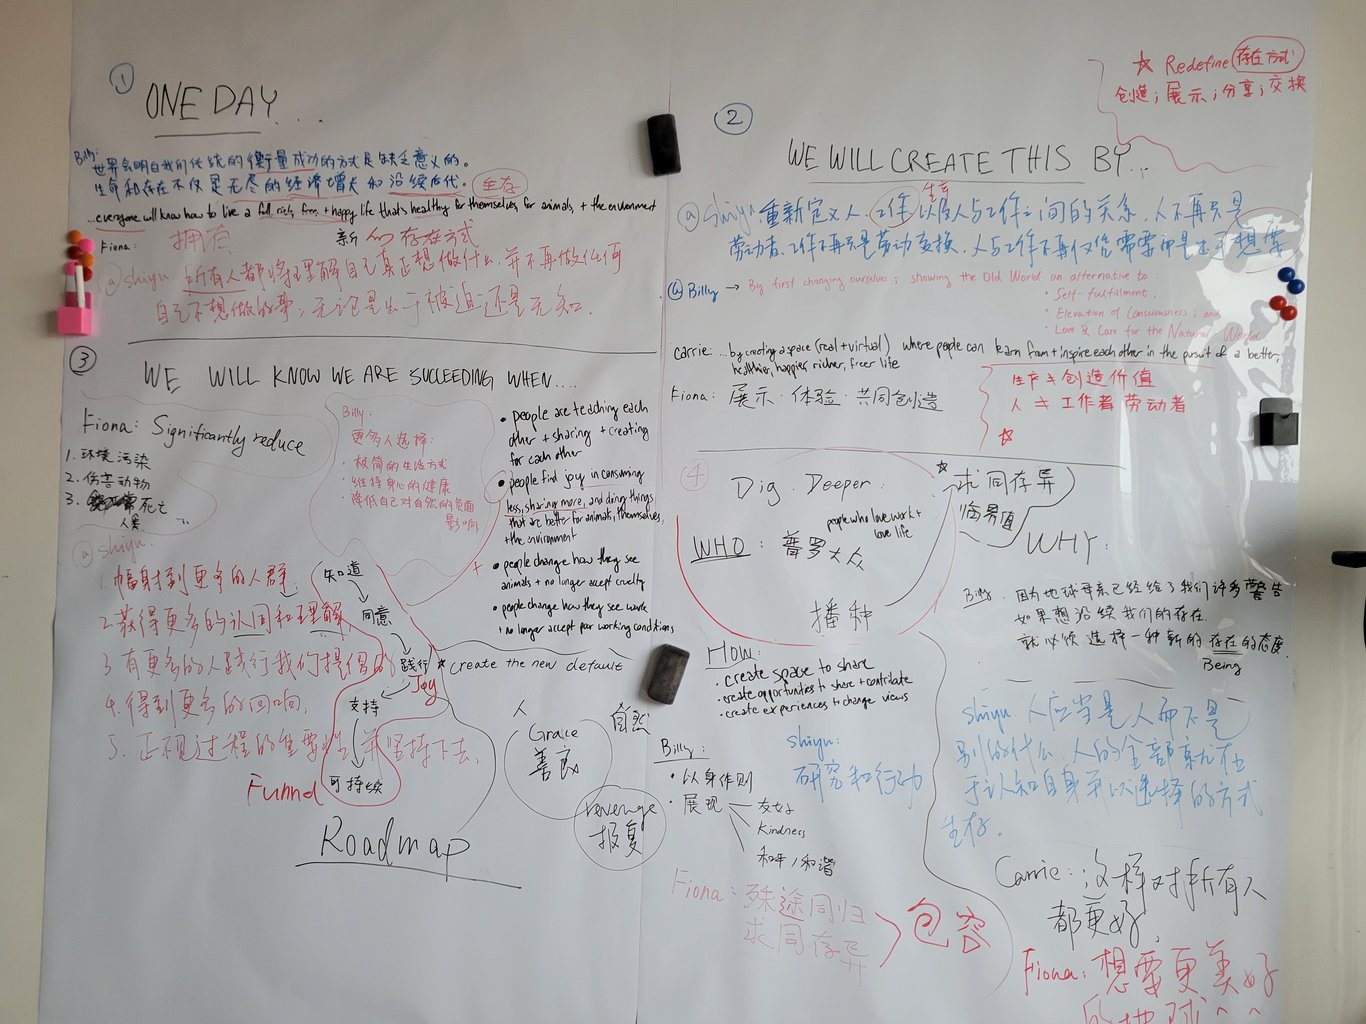 ①
ONE DAY...
Billy:
世界会明白我们传统的衡量成功的方式是缺乏意义的。
生命和存在不仅是无尽的经济增长和沿续后代。
生存
...everyone will know how to live a full, rich, free, + happy life that's healthy for themselves, for animals, + the environment
Fiona: 拥有 新的存在方式
@shiyu 所有人都将理解自己真正想做什么, 并不再做任何
自己不想做的事, 无论是出于被迫还是无知.
②
WE WILL CREATE THIS BY...
☆ Redefine 存在方式
创造; 展示; 分享; 交换
生产
@shiyu 重新定义人、工作以及人与工作之间的关系. 人不再只是
劳动者. 工作不再只是劳动交换.
@Billy → By first changing ourselves; showing the Old World an alternative to:
• Self-fulfillment;
• Elevation of Consciousness; and
• Love & Care for the Natural World
Carrie: ...by creating a space (real + virtual) where people can learn from + inspire each other in the pursuit of a better,
healthier, happier, richer, freer life
Fiona: 展示·体验·共同创造
生产 ≠ 创造价值
人 ≠ 工作者 劳动者
☆
③
WE WILL KNOW WE ARE SUCCEEDING WHEN....
Fiona: Significantly reduce
1. 环境污染
2. 伤害动物
3. 死亡
人类
Billy:
更多人选择:
· 极简的生活方式
· 维持身心的健康
· 降低自己对自然的负面
影响
• people are teaching each
other + sharing + creating
for each other
• people find joy in consuming
less, sharing more, and doing things
that are better for animals, themselves,
+ the environment
• people change how they see
animals + no longer accept cruelty
• people change how they see work
+ no longer accept poor working conditions
@shiyu.
1. 辐射到更多的人群.
2. 获得更多的认同和理解
3. 有更多的人践行我们提倡的
4. 得到更多的回响.
5. 正视过程的重要性 并坚持下去.
知道
同意
践行
Joy
支持
可持续
Funnd
☆ create the new default
Roadmap
人
Grace
善良
自然
revenge
报复
④
Dig Deeper:
☆ 求同存异
临界值
WHO: 普罗大众
people who love work +
love life
播种
How:
• create space to share
• create opportunities to share + contribute
• create experiences to change views
Billy:
• 以身作则
• 展现
友好
Kindness
和平/和谐
shiyu:
研究和行动
Fiona: 殊途同归
求同存异
包容
WHY:
Billy. 因为地球母亲已经给了我们许多警告
如果想沿续我们的存在.
就必须选择一种新的存在的态度.
Being
shiyu 人应当是人而不是
别的什么. 人的全部系统在
于认知自身并以选择的方式
生存.
Carrie: 这样对所有人
都更好.
Fiona: 想要更美好
的地球^^